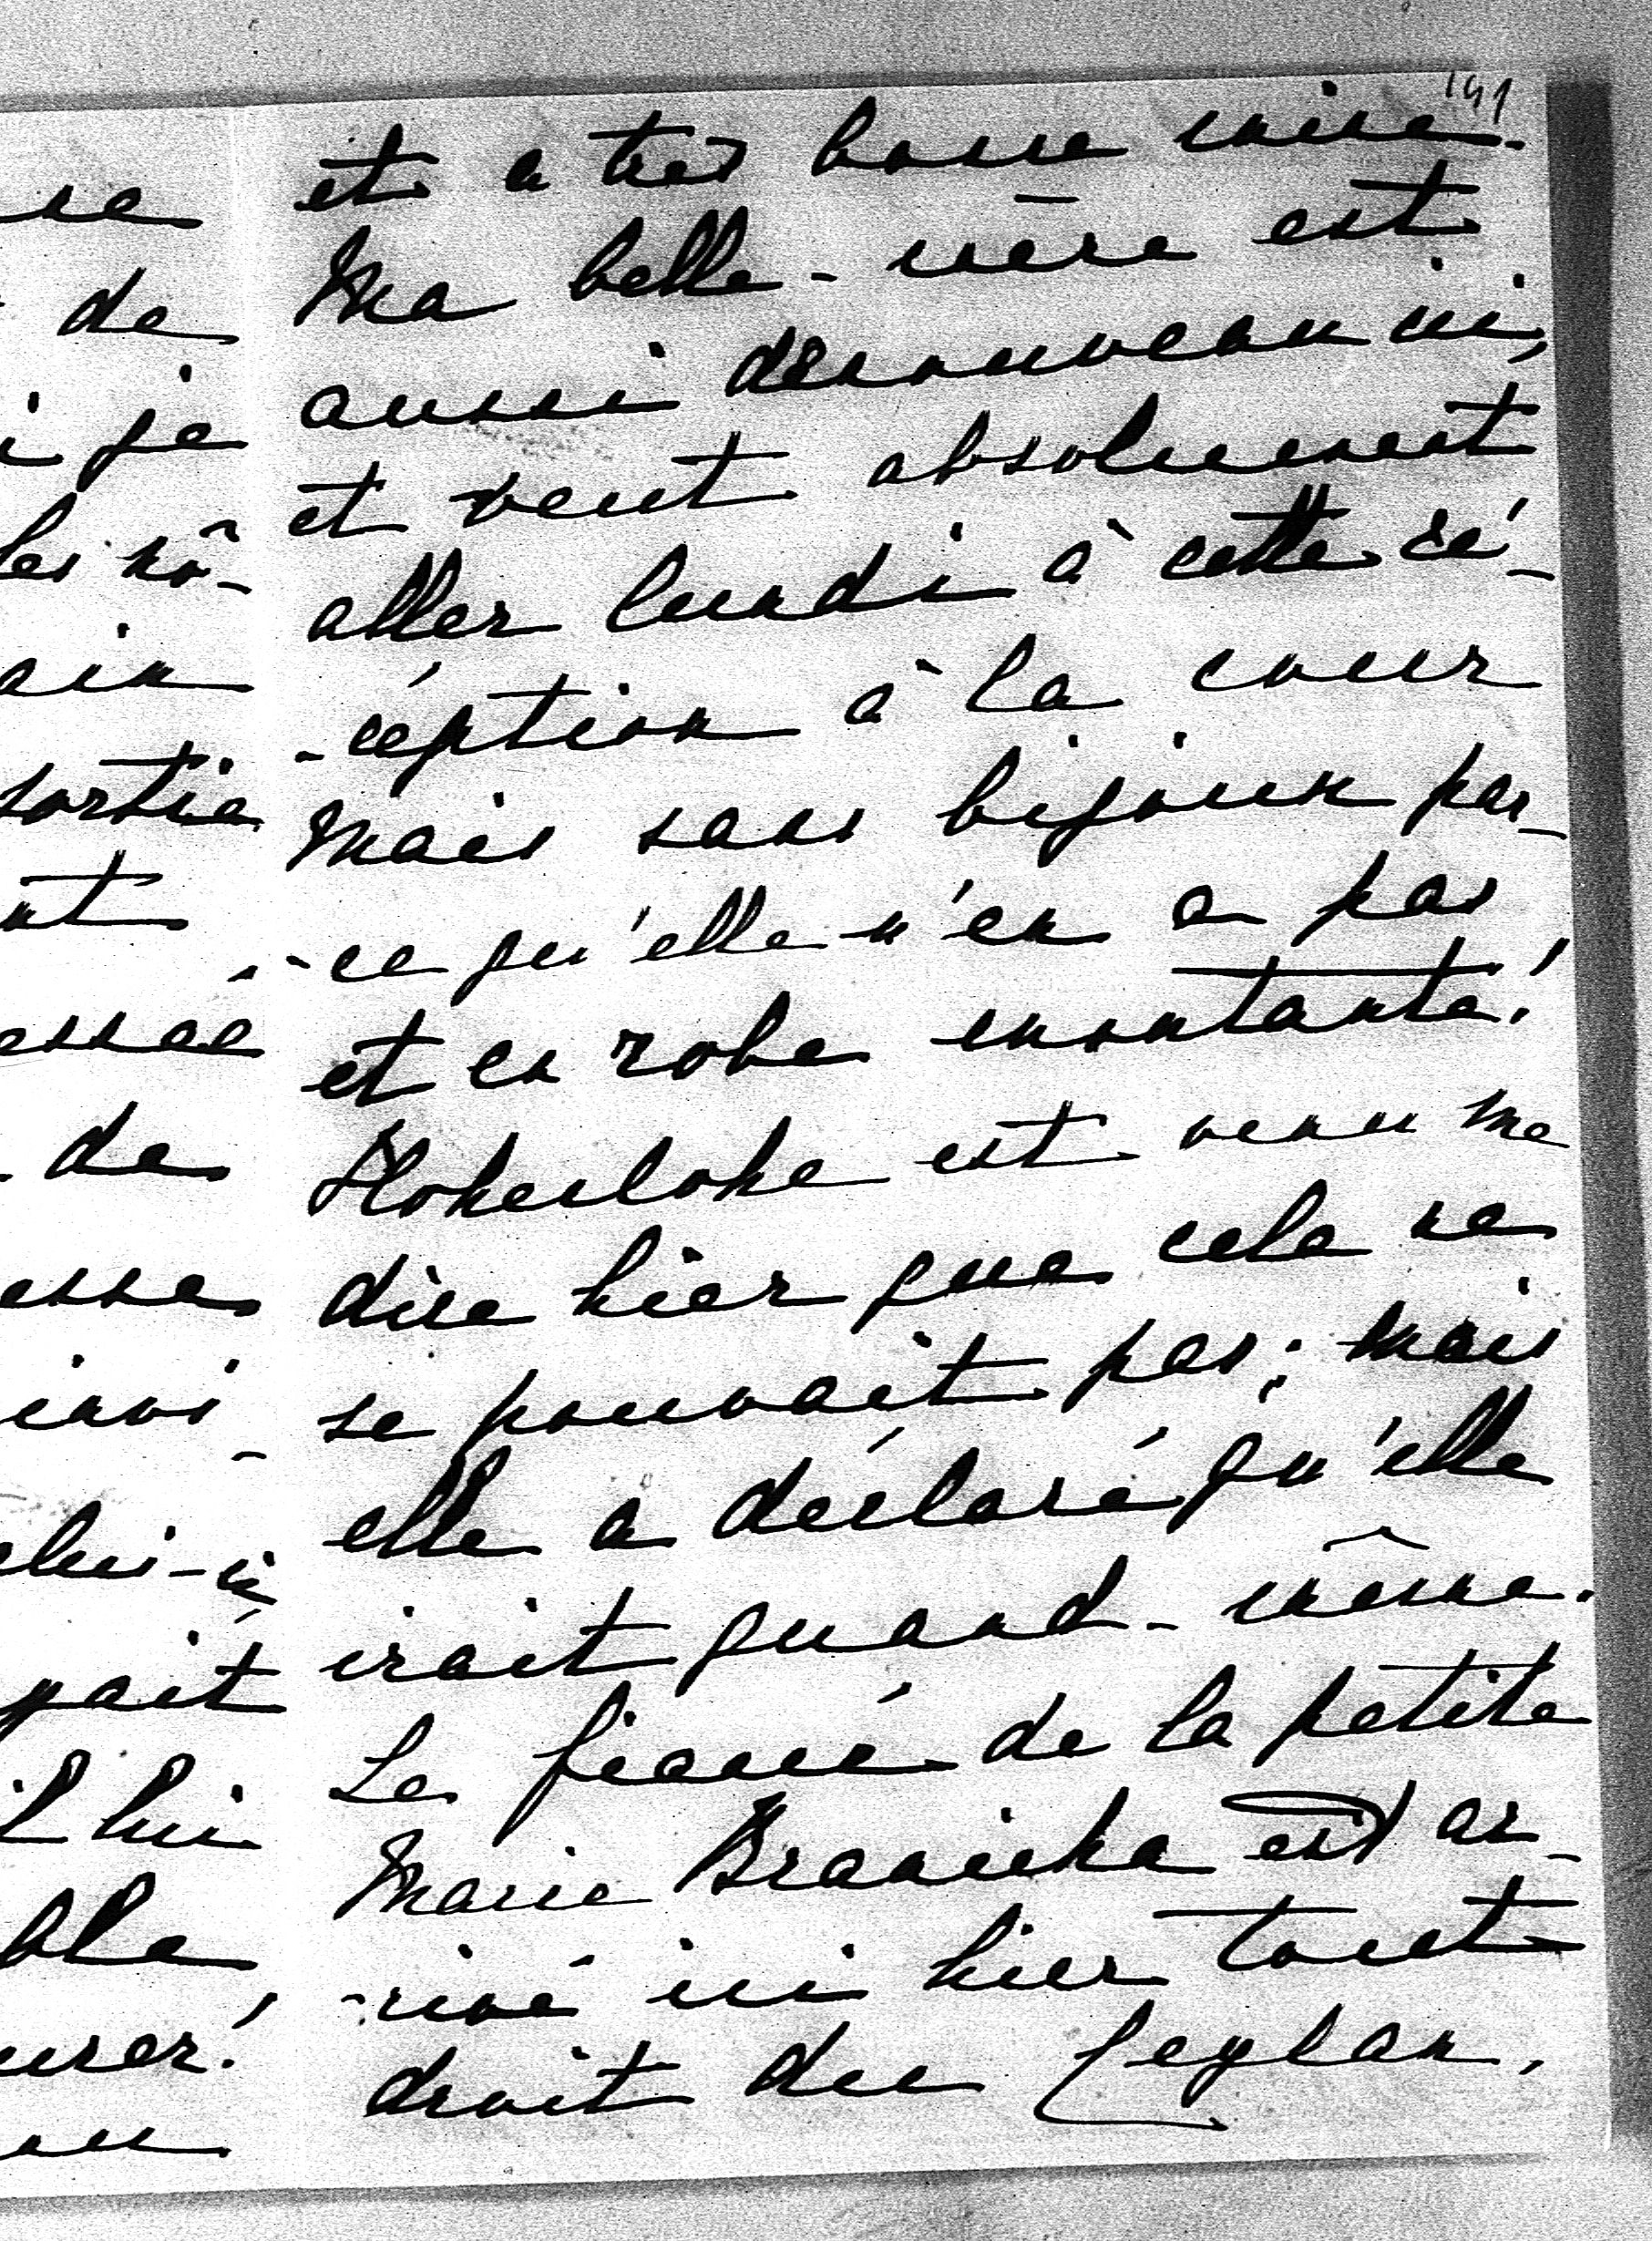 191
et a très bonne mine.
Ma belle-mère est
aussi denouveau ici,
et veut absolument
aller lundi à cette ré-
-céption à la cour
mais sans bijoux par-
-ce qu'elle n'en a pas
et en robe montante!
Hohenlohe est venu me
dire hier que cela ne
se pouvait pas; mais
elle a déclaré qu'elle
irait quand-même.
Le fiancé de la petite
Marie Branicka est ar-
-rivé ici hier tout
droit du Ceylan,
se
de
i je
les nô-
ain
sortie
nt
essée
de
esse
invi-
elui-ci
yait
il lui
ble,
urer!
ou